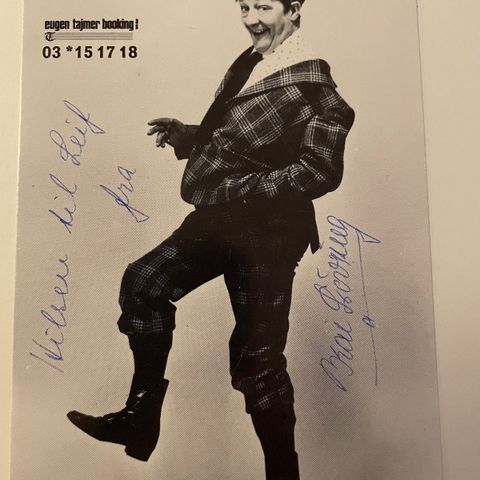 eugen tajmer booking
03 *15 17 18
Hilsen til Leif
fra
Kai Løvring